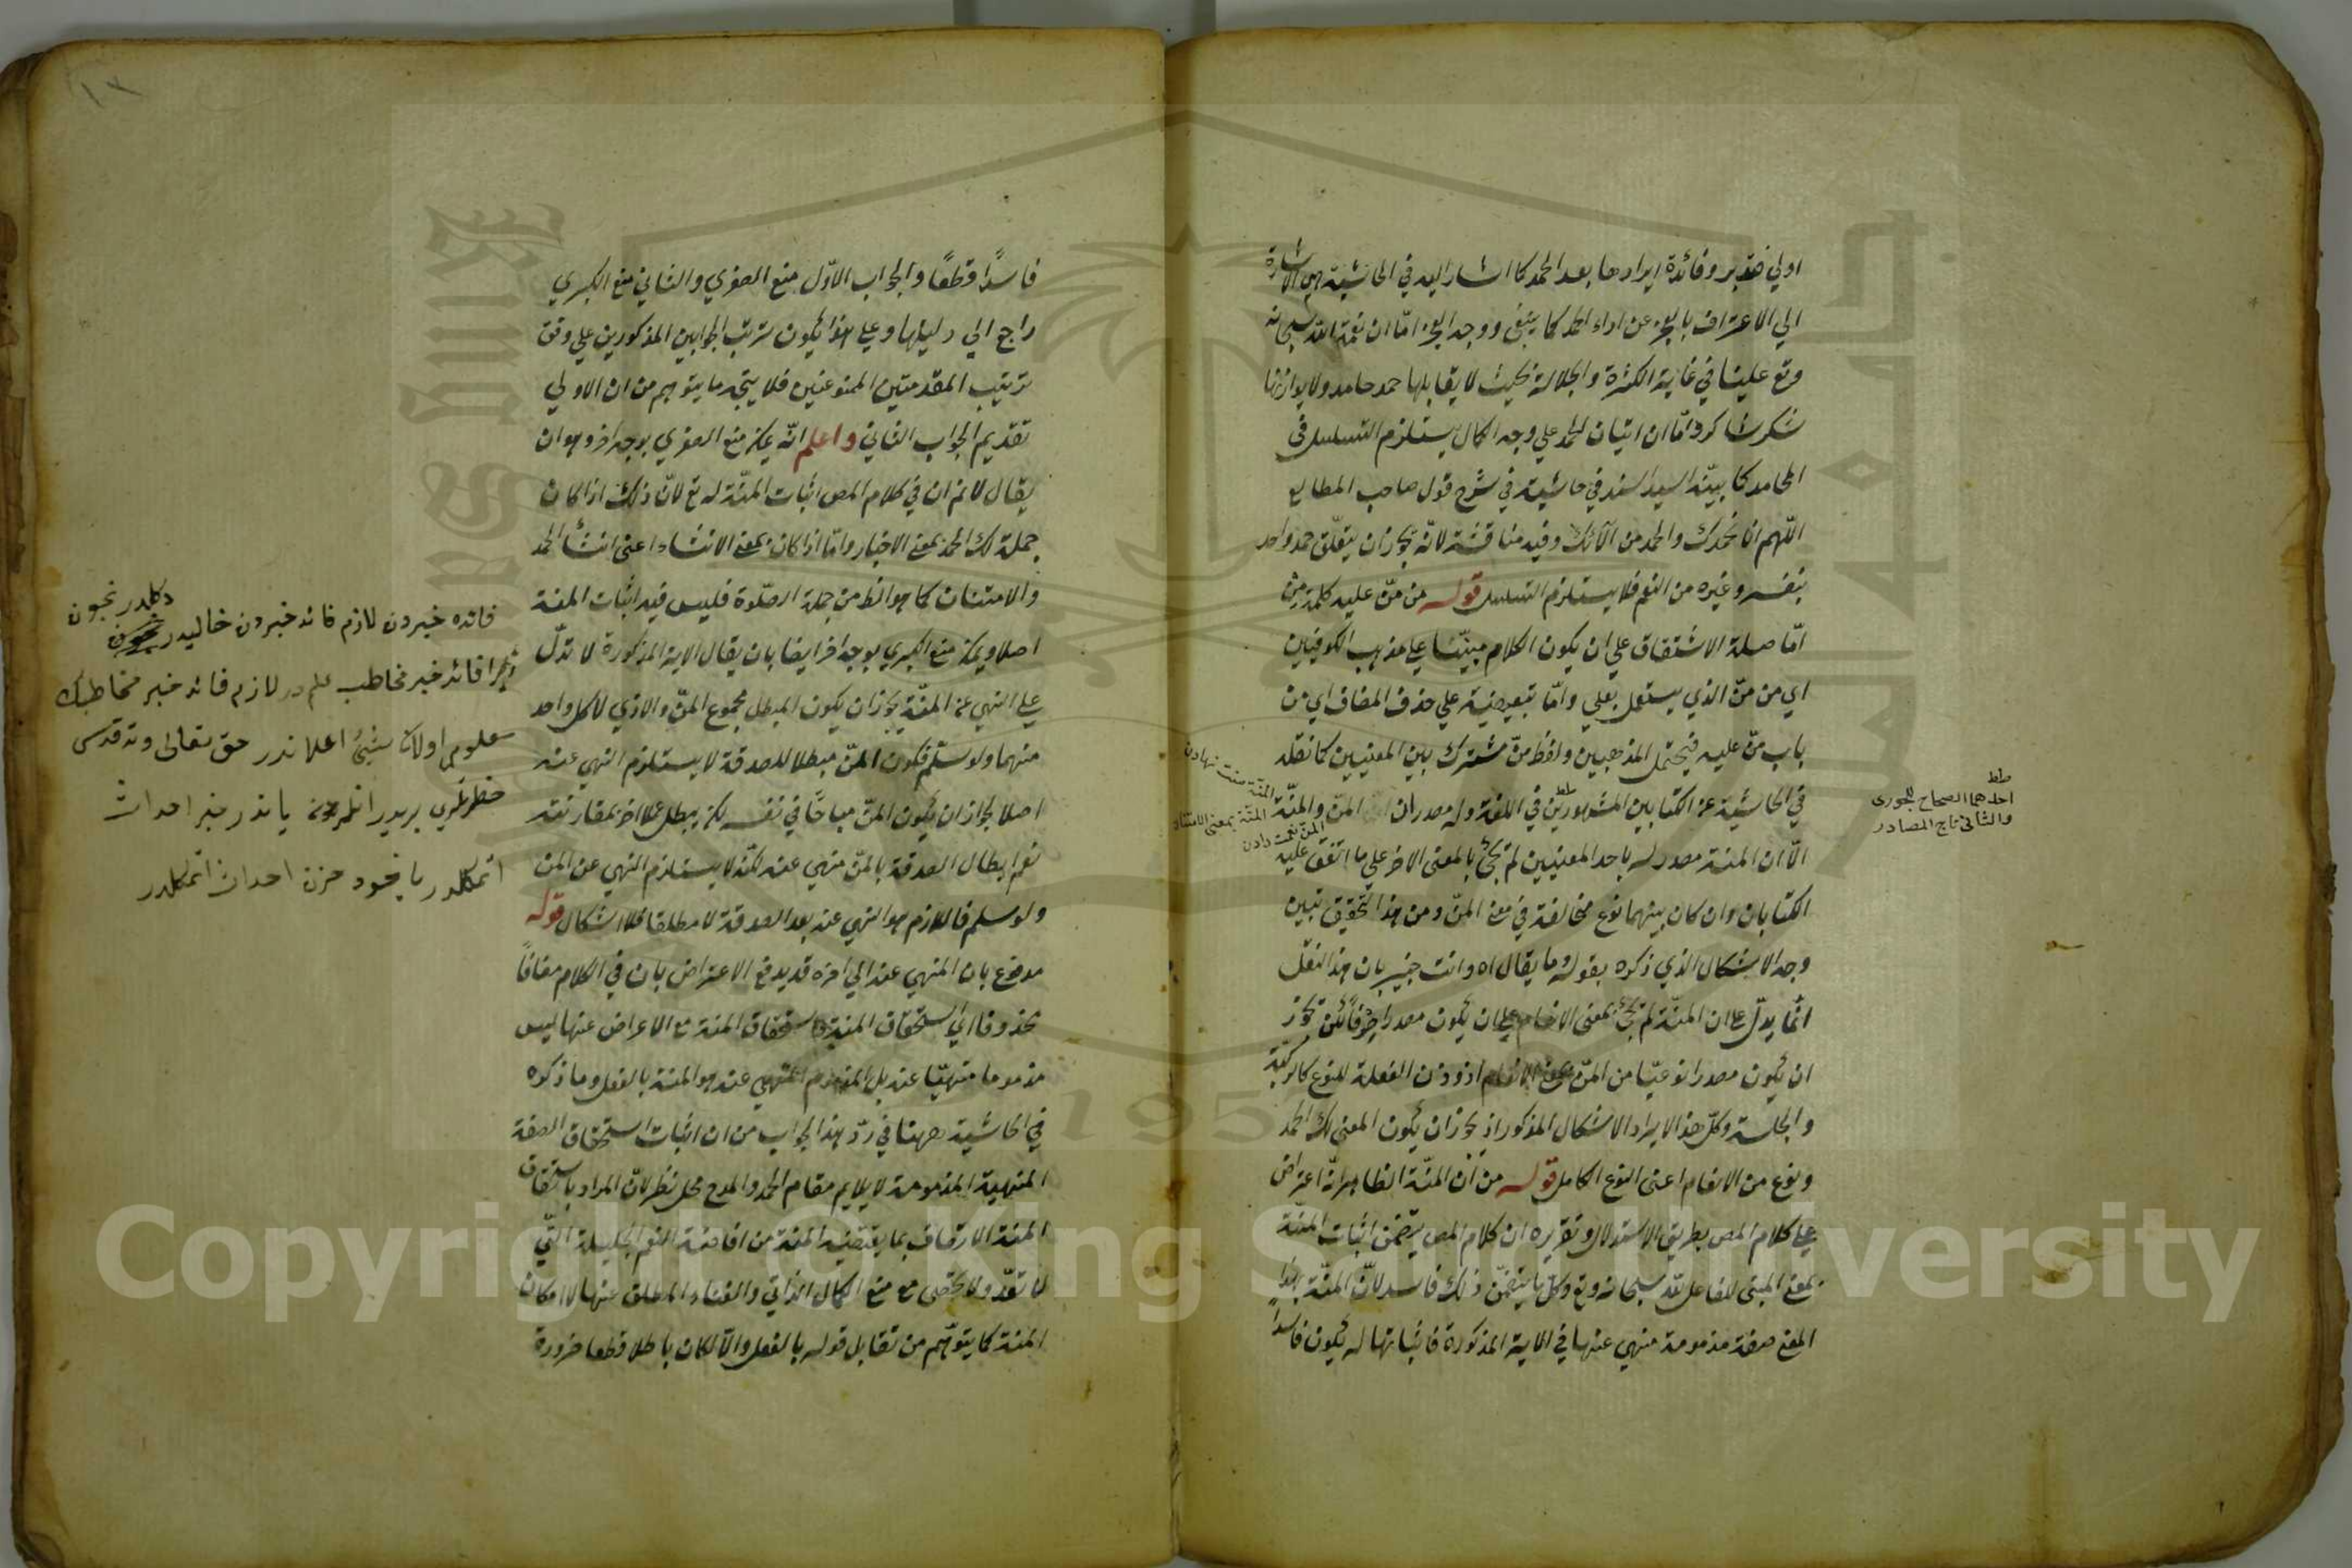 اولي فتدبر وفائدة ايرادها بعد الحمد كما اشار اليه في الحاشية هي الاشارة
الي الاعتراف بالعجز عن اداء الحمد كما ينبغي ووجه العجز امّا ان نعمة اللّه سبحانه
وتع علينا في غاية الكثرة والجلالة بحيث لا يقابلها حمد حامد ولا يوازنها
شكر شاكر وامّا ان اتيان الحمد علي وجه الكمال يستلزم التسلسل في
المحامد كما بيّنه السيد السند في حاشيته في شرح قول صاحب المطالع
اللّهم انا نحمدك والحمد من آلائك وفيه مناقشة لانّه يجوز ان يتعلّق حمد واحد
بنفسه وغيره من النعم فلا يستلزم التسلسل قوله من منّ عليه كلمة من
امّا صلة الاشتقاق علي ان يكون الكلام مبنيّا علي مذهب الكوفيين
اي من منّ الذي يستعمل بعلي وامّا تبعيضية علي حذف المضاف اي من
باب منّ عليه فيحتمل المذهبين ولفظ منّ مشترك بين المعنيين كما نقله
في الحاشية عن الكتابين المشهورين في اللغة وله مصدران المنّ والمنّة
الّا ان المنة مصدر له باحد المعنيين لم تجئ بالمعنى الاخر علي ما اتفق عليه
الكتابان وان كان بينهما نوع مخالفة في معنى المنّ ومن هذا التحقيق تبين
وجه الاشكال الذي ذكره بقوله وما يقال اه وانت خبير بان هذا النقل
انّما يدلّ علي ان المنّة لم تجئ بمعنى الانعام علي ان يكون مصدرا صرفا لكن يجوز
ان يكون مصدرا نوعيّا من المنّ بمعنى الانعام اذ وزن الفعلة للنوع كالركبة
والجلسة وكلّ هذا الايراد الاشكال المذكور اذ يجوز ان يكون المعنى لك الحمد
ونوع من الانعام اعنى النوع الكامل قوله من ان المنّة الظاهر انّه اعتراض
علي كلام المص بطريق الاستدلال وتقريره ان كلام المص يتضمن اثبات المنّة
بمعنى المبنى للفاعل للّه سبحانه وتع وكلّ ما يتضمّن ذلك فاسد لانّ المنّة بهذا
المعنى صفة مذمومة منهي عنها في الاية المذكورة فاثباتها له يكون فاسدا
المنة منت نهادن
المنة بمعنى الامتنان
المن نعمت دادن
احدهما الصحاح للجوهرى
والثانى تاج المصادر
فاسدًا قطعًا والجواب الاوّل منع الصغري والثاني منع الكبري
راجع الي دليلها وعلي هذا يكون ترتيب الجوابين المذكورين علي وفق
ترتيب المقدمتين الممنوعتين فلا يتجه ما يتوهم من ان الاولي
تقديم الجواب الثاني واعلم انّه يمكن منع الصغري بوجه اخر وهو ان
يقال لا نم ان في كلام المص اثبات المنّة له تع لانّ ذلك اذا كان
جملة لك الحمد بمعنى الاخبار وامّا اذا كان بمعنى الانشاء اعنى انشأ الحمد
والامتنان كما هو الظ من جملة الصلّوة فليس فيه اثبات المنة
اصلا ويمكن منع الكبري بوجه اخر ايضا بان يقال الاية المذكورة لا تدلّ
علي النهي عن المنّة يجوز ان يكون المبطل مجموع المنّ والاذي لا كل واحد
منهما ولو سلّم فكون المنّ مبطلا للصدقة لا يستلزم النهي عنه
اصلا لجواز ان يكون المنّ مباحًا في نفسه لكن يبطل عملا اخر بمقارنته
نعم ابطال الصدقة بالمنّ منهي عنه لكنّه لا يستلزم النهي عن المن
ولو سلم فاللازم هو النهي عنه بعد الصدقة لا مطلقا فلا اشكال قوله
مدفوع بان المنهي عنه الي اخره قد يدفع الاعتراض بان في الكلام مضافًا
محذوفا اي استحقاق المنة واستحقاق المنة مع الاعراض عنها ليس
مذموما منهيّا عنه بل المذموم المنهي عنه هو المنة بالفعل وما ذكره
في الحاشية ههنا في ردّ هذا الجواب من ان اثبات استحقاق الصفة
المنهية المذمومة لا يلايم مقام الحمد والمدح محل نظر لانّ المراد باستحقاق
المنة الاتصاف بما يقتضيه المنة من افاضة النعم الجليلة التّي
لا تعدّ ولا تحصى مع منع الكمال الذاتي والغناء المطلق عنها لا امكان
المنة كما يتوهّم من تقابل قوله بالفعل والّا لكان باطلا قطعا ضرورة
فائده خبردن لازم فائده خبردن خاليدر دكلدر نچون
زيرا فائده خبر مخاطب علمدر لازم فائده خبر مخاطبك
معلومى اولان شيئ اعلامدر حق تعالى وتقدس
Copyright © King Saud University
1957